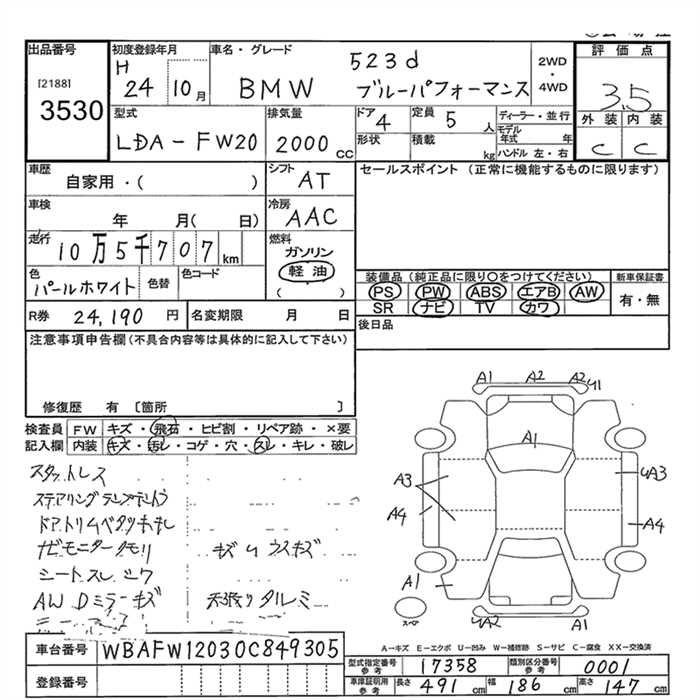 出品番号
[2188]
3530
初度登録年月
H
24 10月
車名・グレード
523d
BMW ブルーパフォーマンス
2WD
・
4WD
評価点
3.5
外装 内装
C C
型式
LDA-FW20
排気量
2000 CC
ドア
4
形状
定員
5 人
積載
kg
ディーラー・並行
モデル年式 年
ハンドル 左・右
車歴
自家用・( )
シフト
AT
セールスポイント (正常に機能するものに限ります)
車検
年 月( 日)
冷房
AAC
走行
10万5千707km
燃料
ガソリン
軽油
( )
色
パールホワイト
色替
色コード
装備品 (純正品に限り○をつけてください)
PS PW ABS エアB AW
SR ナビ TV カワ
新車保証書
有・無
R券 24,190 円
名変期限 月 日
後日品
注意事項申告欄(不具合内容等は具体的に記入して下さい)
修復歴 有 [箇所 ]
検査員 FW キズ・飛石・ヒビ割・リペア跡・×要
記入欄 内装 キズ・汚レ・コゲ・穴・スレ・キレ・破レ
スタットレス
ドアトリムベタツキ
ナビモニタークモリ キズ
シートスレ シワ
AW Dミラーキズ 天張りタルミ
A1 A2 A2 U1
A1
A3
A4
A1
A3
A4
UA2 A1
スペア
A-キズ E-エクボ U-凹み W-補修跡 S-サビ C-腐食 XX-交換済
車台番号 WBAFW12030C849305
登録番号
型式指定番号
参考
17358
類別区分番号
参考
0001
車庫証明用
参考
長さ 491 cm 幅 186 cm 高さ 147 cm